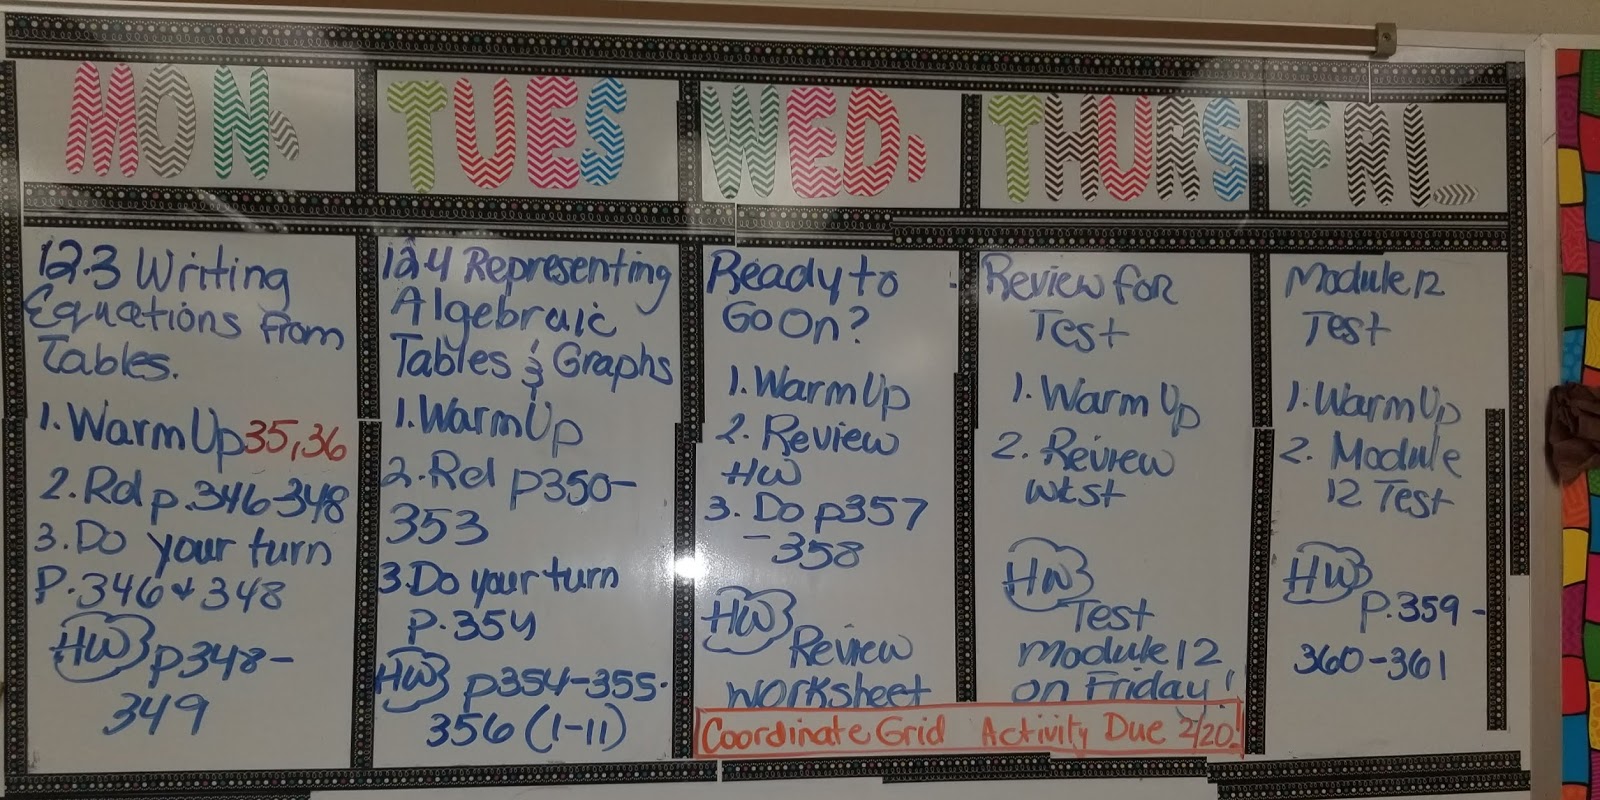 MON.
12.3 Writing
Equations from
Tables.
1. Warm Up 35, 36
2. Rd p. 346-348
3. Do your turn
P. 346 & 348
HW p348-
349
TUES
12.4 Representing
Algebraic
Tables & Graphs
1. Warm Up
2. Rd p350-
353
3. Do your turn
p. 354
HW p354-355.
356 (1-11)
WED.
Ready to
Go On?
1. Warm Up
2. Review
HW
3. Do p357
-358
HW
Review
worksheet
THURS
Review for
Test
1. Warm Up
2. Review
wkst
HW
Test
module 12
on Friday!
Coordinate Grid Activity Due 2/20!
FRI.
Module 12
Test
1. Warm Up
2. Module
12 Test
HW p. 359-
360-361